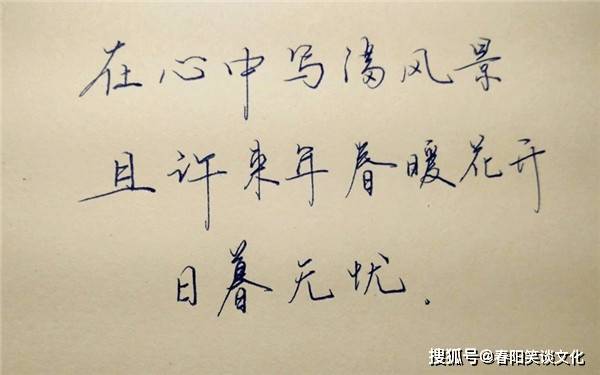 在心中写满风景
且许来年春暖花开
日暮无忧.
搜狐号@春阳笑谈文化